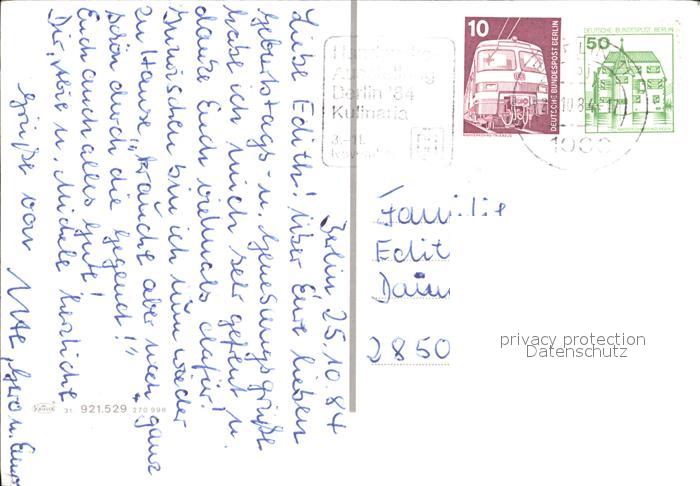 Berlin 25.10.84
Liebe Edith! Über Eure lieben
Geburtstags- u. Genesungsgrüße
habe ich mich sehr gefreut u.
danke Euch vielmals dafür!
Inzwischen bin ich nun wieder
zu Hause, "kraucht aber noch ganz
schön durch die Gegend!"
Euch auch alles Gute!
Dir, u. Michele herzliche
Grüße von Ute, Gero u.
Krüger
31 921.529 270 998
Berlin '84
Kulinaria
10
DEUTSCHE BUNDESPOST BERLIN
50
DEUTSCHE BUNDESPOST BERLIN
10.84
1000
Familie
Edit
Daim
2850
privacy protection
Datenschutz